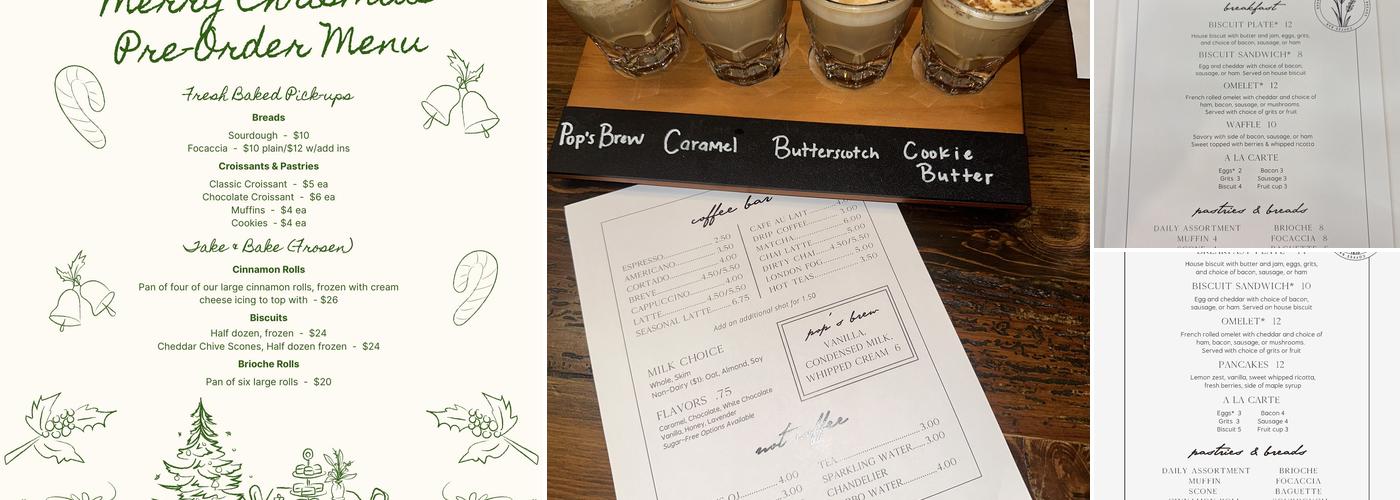 Merry Christmas
Pre-Order Menu
Fresh Baked Pick-ups
Breads
Sourdough - $10
Focaccia - $10 plain/$12 w/add ins
Croissants & Pastries
Classic Croissant - $5 ea
Chocolate Croissant - $6 ea
Muffins - $4 ea
Cookies - $4 ea
Take & Bake (Frosen)
Cinnamon Rolls
Pan of four of our large cinnamon rolls, frozen with cream
cheese icing to top with - $26
Biscuits
Half dozen, frozen - $24
Cheddar Chive Scones, Half dozen frozen - $24
Brioche Rolls
Pan of six large rolls - $20
Pop's Brew
Caramel
Butterscotch
Cookie
Butter
coffee bar
ESPRESSO 2.50
AMERICANO 3.50
CORTADO 4.00
BREVE 4.50/5.50
CAPPUCCINO 4.00
LATTE 4.50/5.50
SEASONAL LATTE 6.75
CAFE AU LAIT
DRIP COFFEE 3.00
MATCHA 6.00
CHAI LATTE 5.00
DIRTY CHAI 4.50/5.50
LONDON FOG 5.00
HOT TEAS 3.50
Add an additional shot for 1.50
MILK CHOICE
Whole, Skim
Non-Dairy ($1): Oat, Almond, Soy
FLAVORS .75
Caramel, Chocolate, White Chocolate
Vanilla, Honey, Lavender
Sugar-Free Options Available
pop's brew
VANILLA,
CONDENSED MILK,
WHIPPED CREAM 6
not coffee
4.00
3.00
4.00
TEA 3.00
SPARKLING WATER 3.00
CHANDELIER
WATER 4.00
breakfast
BISCUIT PLATE* 12
House biscuit with butter and jam, eggs, grits,
and choice of bacon, sausage, or ham
BISCUIT SANDWICH* 8
Egg and cheddar with choice of bacon,
sausage, or ham. Served on house biscuit
OMELET* 12
French rolled omelet with cheddar and choice of
ham, bacon, sausage, or mushrooms.
Served with choice of grits or fruit
WAFFLE 10
Savory with side of bacon, sausage, or ham
Sweet topped with berries & whipped ricotta
A LA CARTE
Eggs* 2 Bacon 3
Grits 3 Sausage 3
Biscuit 4 Fruit cup 3
pastries & breads
DAILY ASSORTMENT BRIOCHE 8
MUFFIN 4 FOCACCIA 8
House biscuit with butter and jam, eggs, grits,
and choice of bacon, sausage, or ham
BISCUIT SANDWICH* 10
Egg and cheddar with choice of bacon,
sausage, or ham. Served on house biscuit
OMELET* 12
French rolled omelet with cheddar and choice of
ham, bacon, sausage, or mushrooms.
Served with choice of grits or fruit
PANCAKES 12
Lemon zest, vanilla, sweet whipped ricotta,
fresh berries, side of maple syrup
A LA CARTE
Eggs* 3 Bacon 4
Grits 3 Sausage 4
Biscuit 5 Fruit cup 3
pastries & breads
DAILY ASSORTMENT BRIOCHE
MUFFIN FOCACCIA
SCONE BAGUETTE